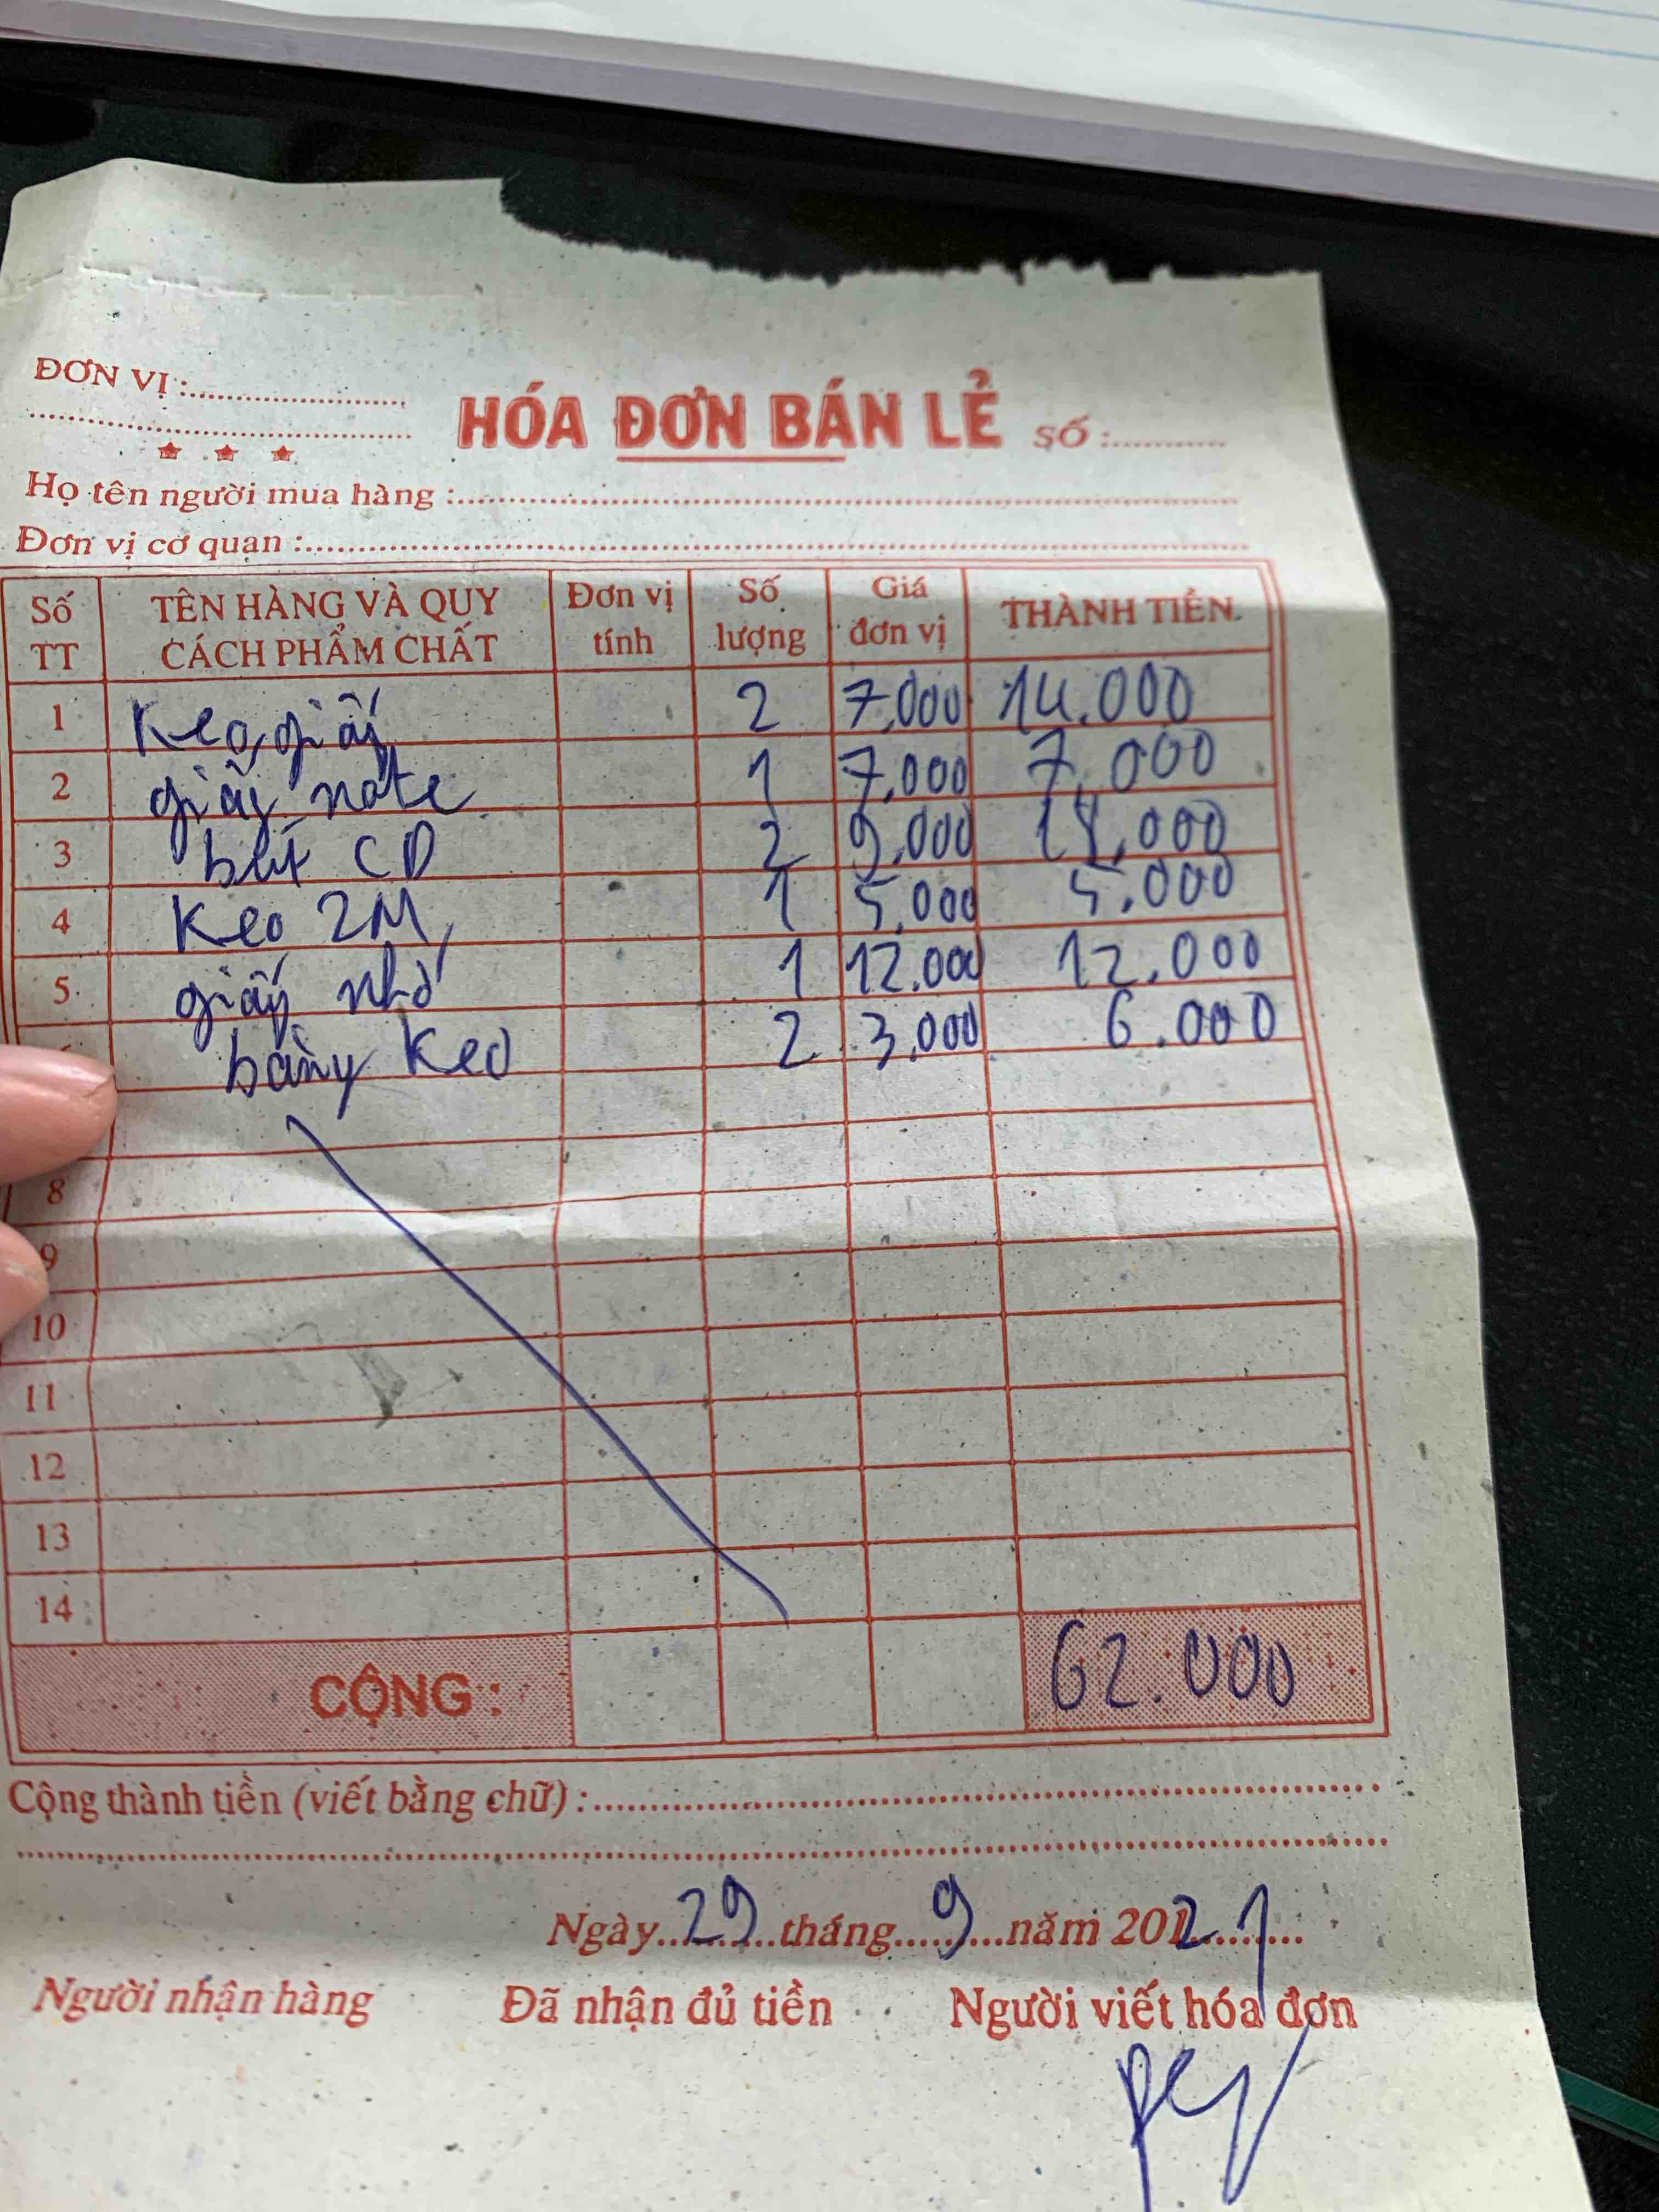 ĐƠN VỊ :
HÓA ĐƠN BÁN LẺ số :
Họ tên người mua hàng :
Đơn vị cơ quan :
Số TT TÊN HÀNG VÀ QUY CÁCH PHẨM CHẤT Đơn vị tính Số lượng Giá đơn vị THÀNH TIỀN
1 Keo giấy 2 7,000 14.000
2 giấy note 1 7,000 7,000
3 bút CD 2 9,000 18,000
4 Keo 2M 1 5,000 5.000
5 giấy nhớ 1 12.000 12.000
băng Keo 2 3,000 6.000
8
9
10
11
12
13
14
CỘNG : 62.000
Cộng thành tiền (viết bằng chữ) :
Ngày 29 tháng 9 năm 2021
Người nhận hàng Đã nhận đủ tiền Người viết hóa đơn